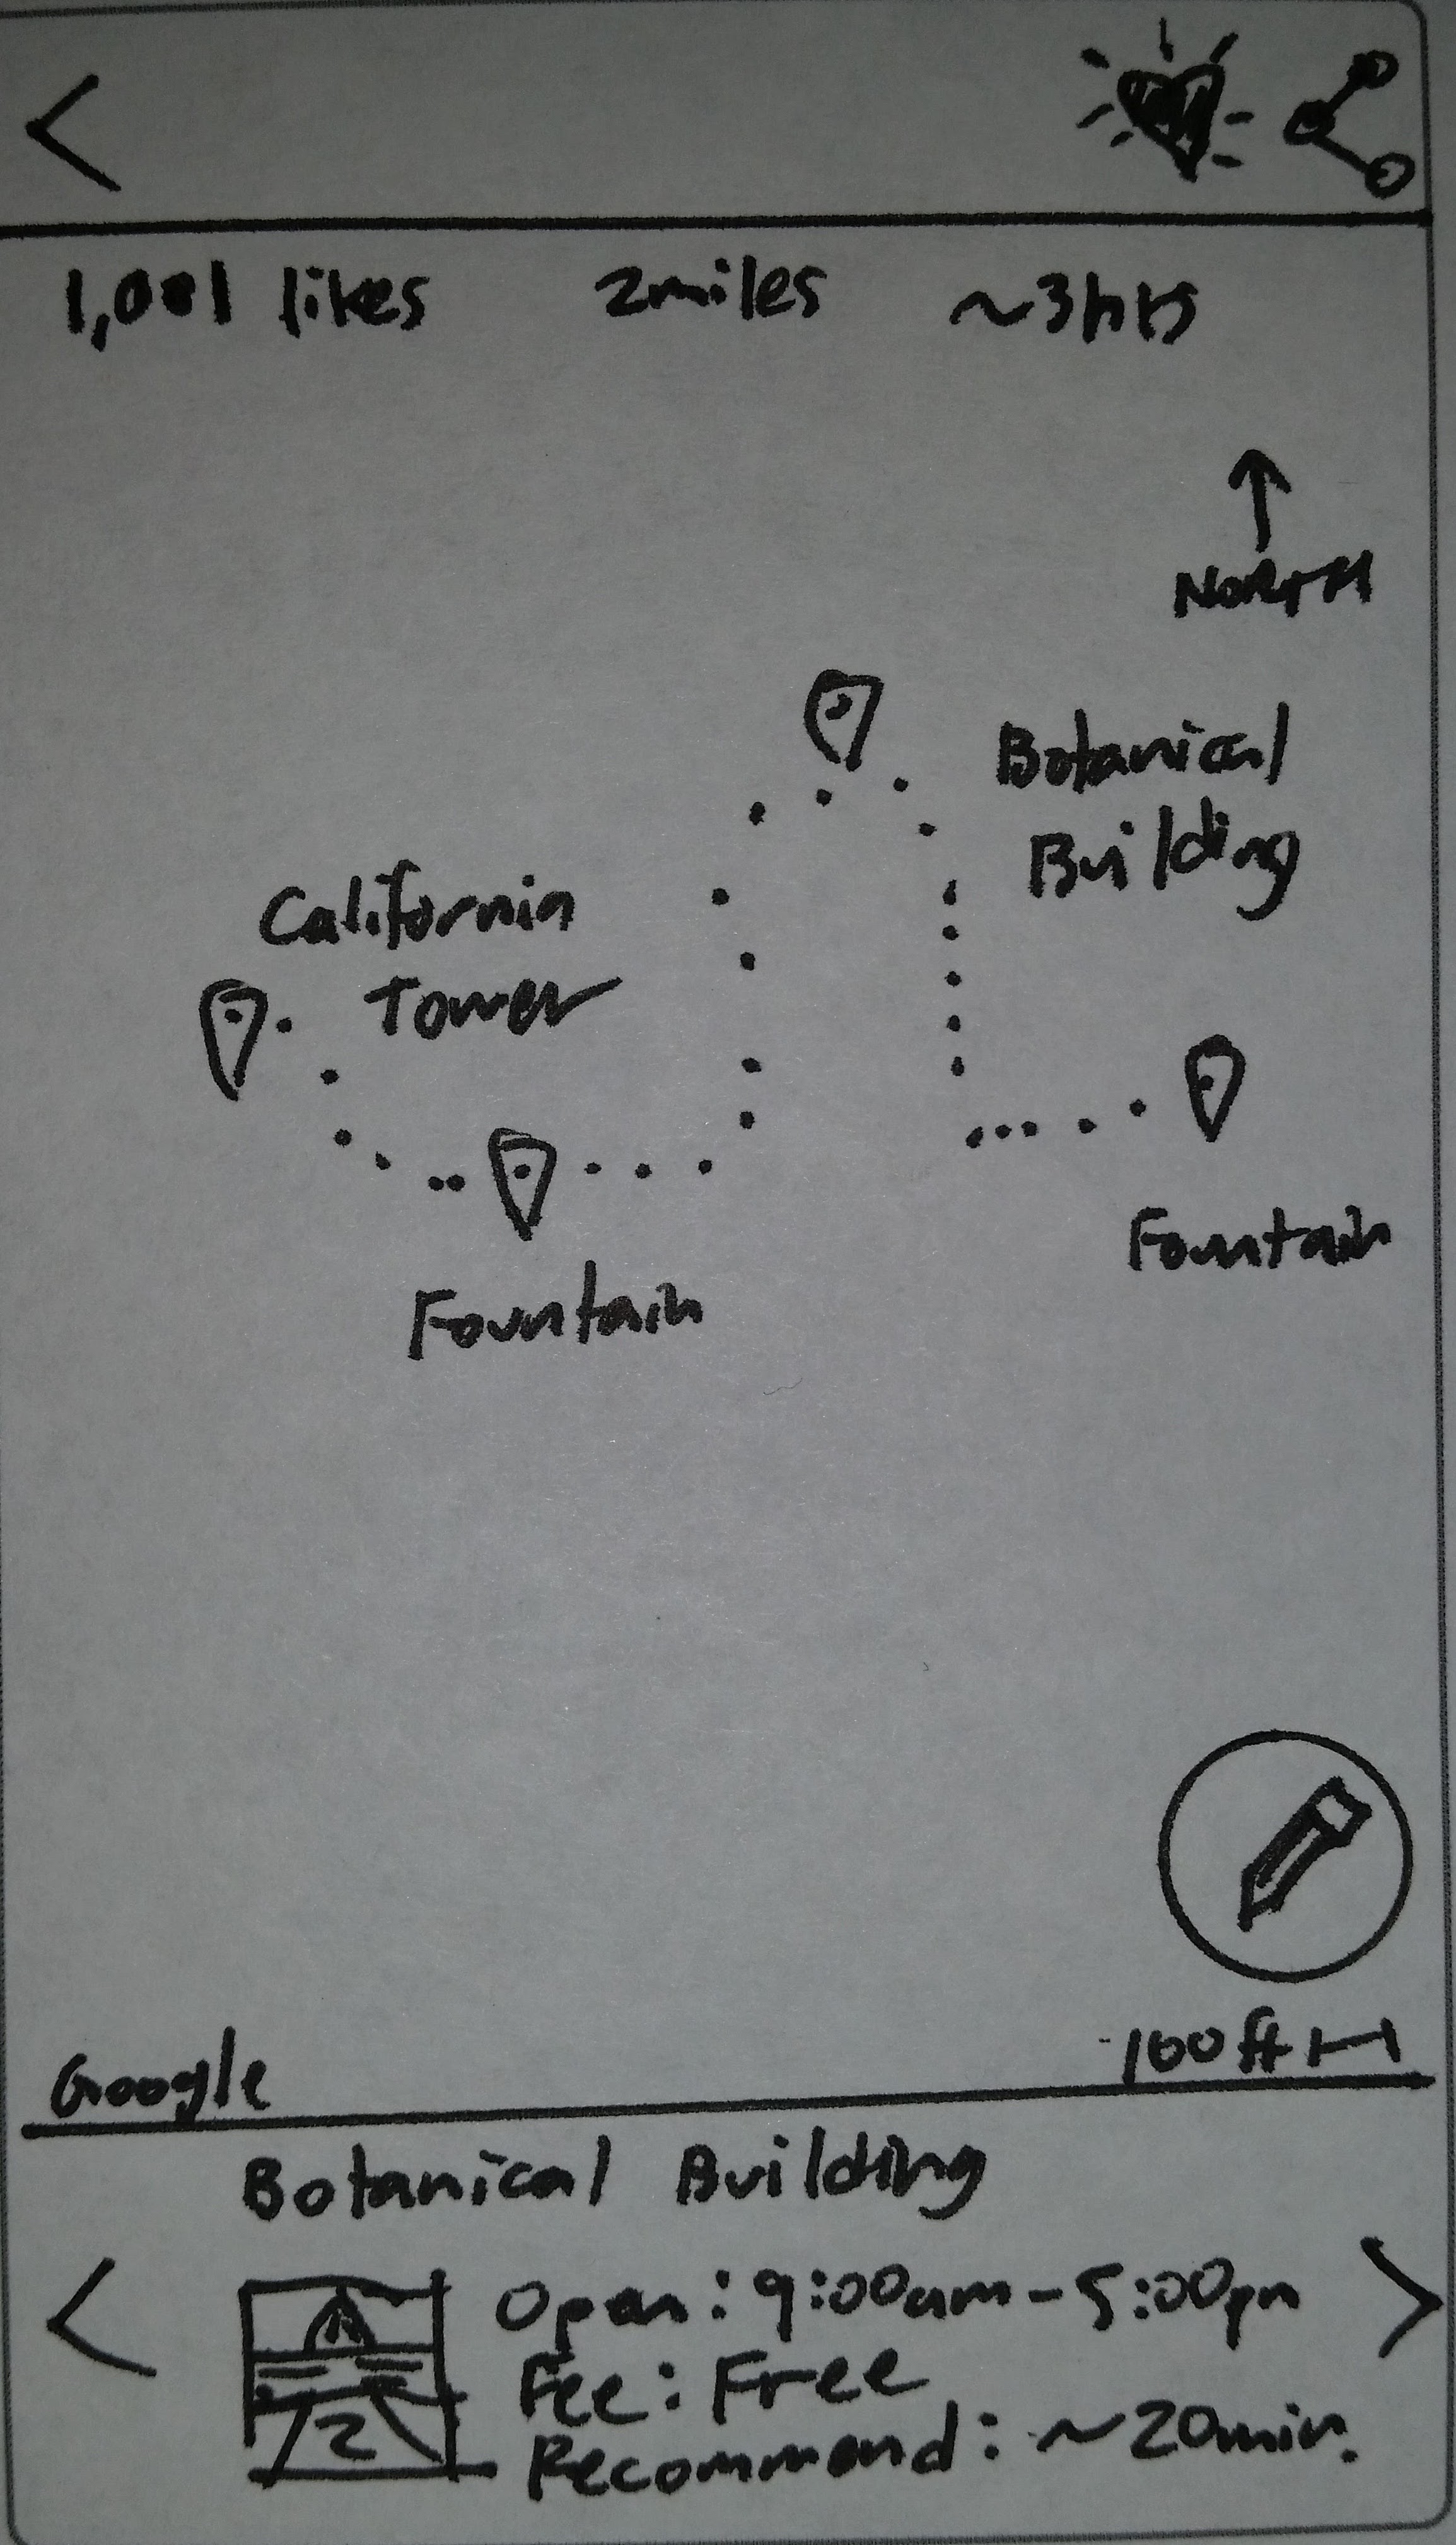 1,001 likes 2miles ~3hrs
NORTH
Botanical
Building
California
Tower
Fountain
Fountain
100ft
Google
Botanical Building
Open: 9:00am-5:00pm
Fee: Free
Recommend: ~20min.